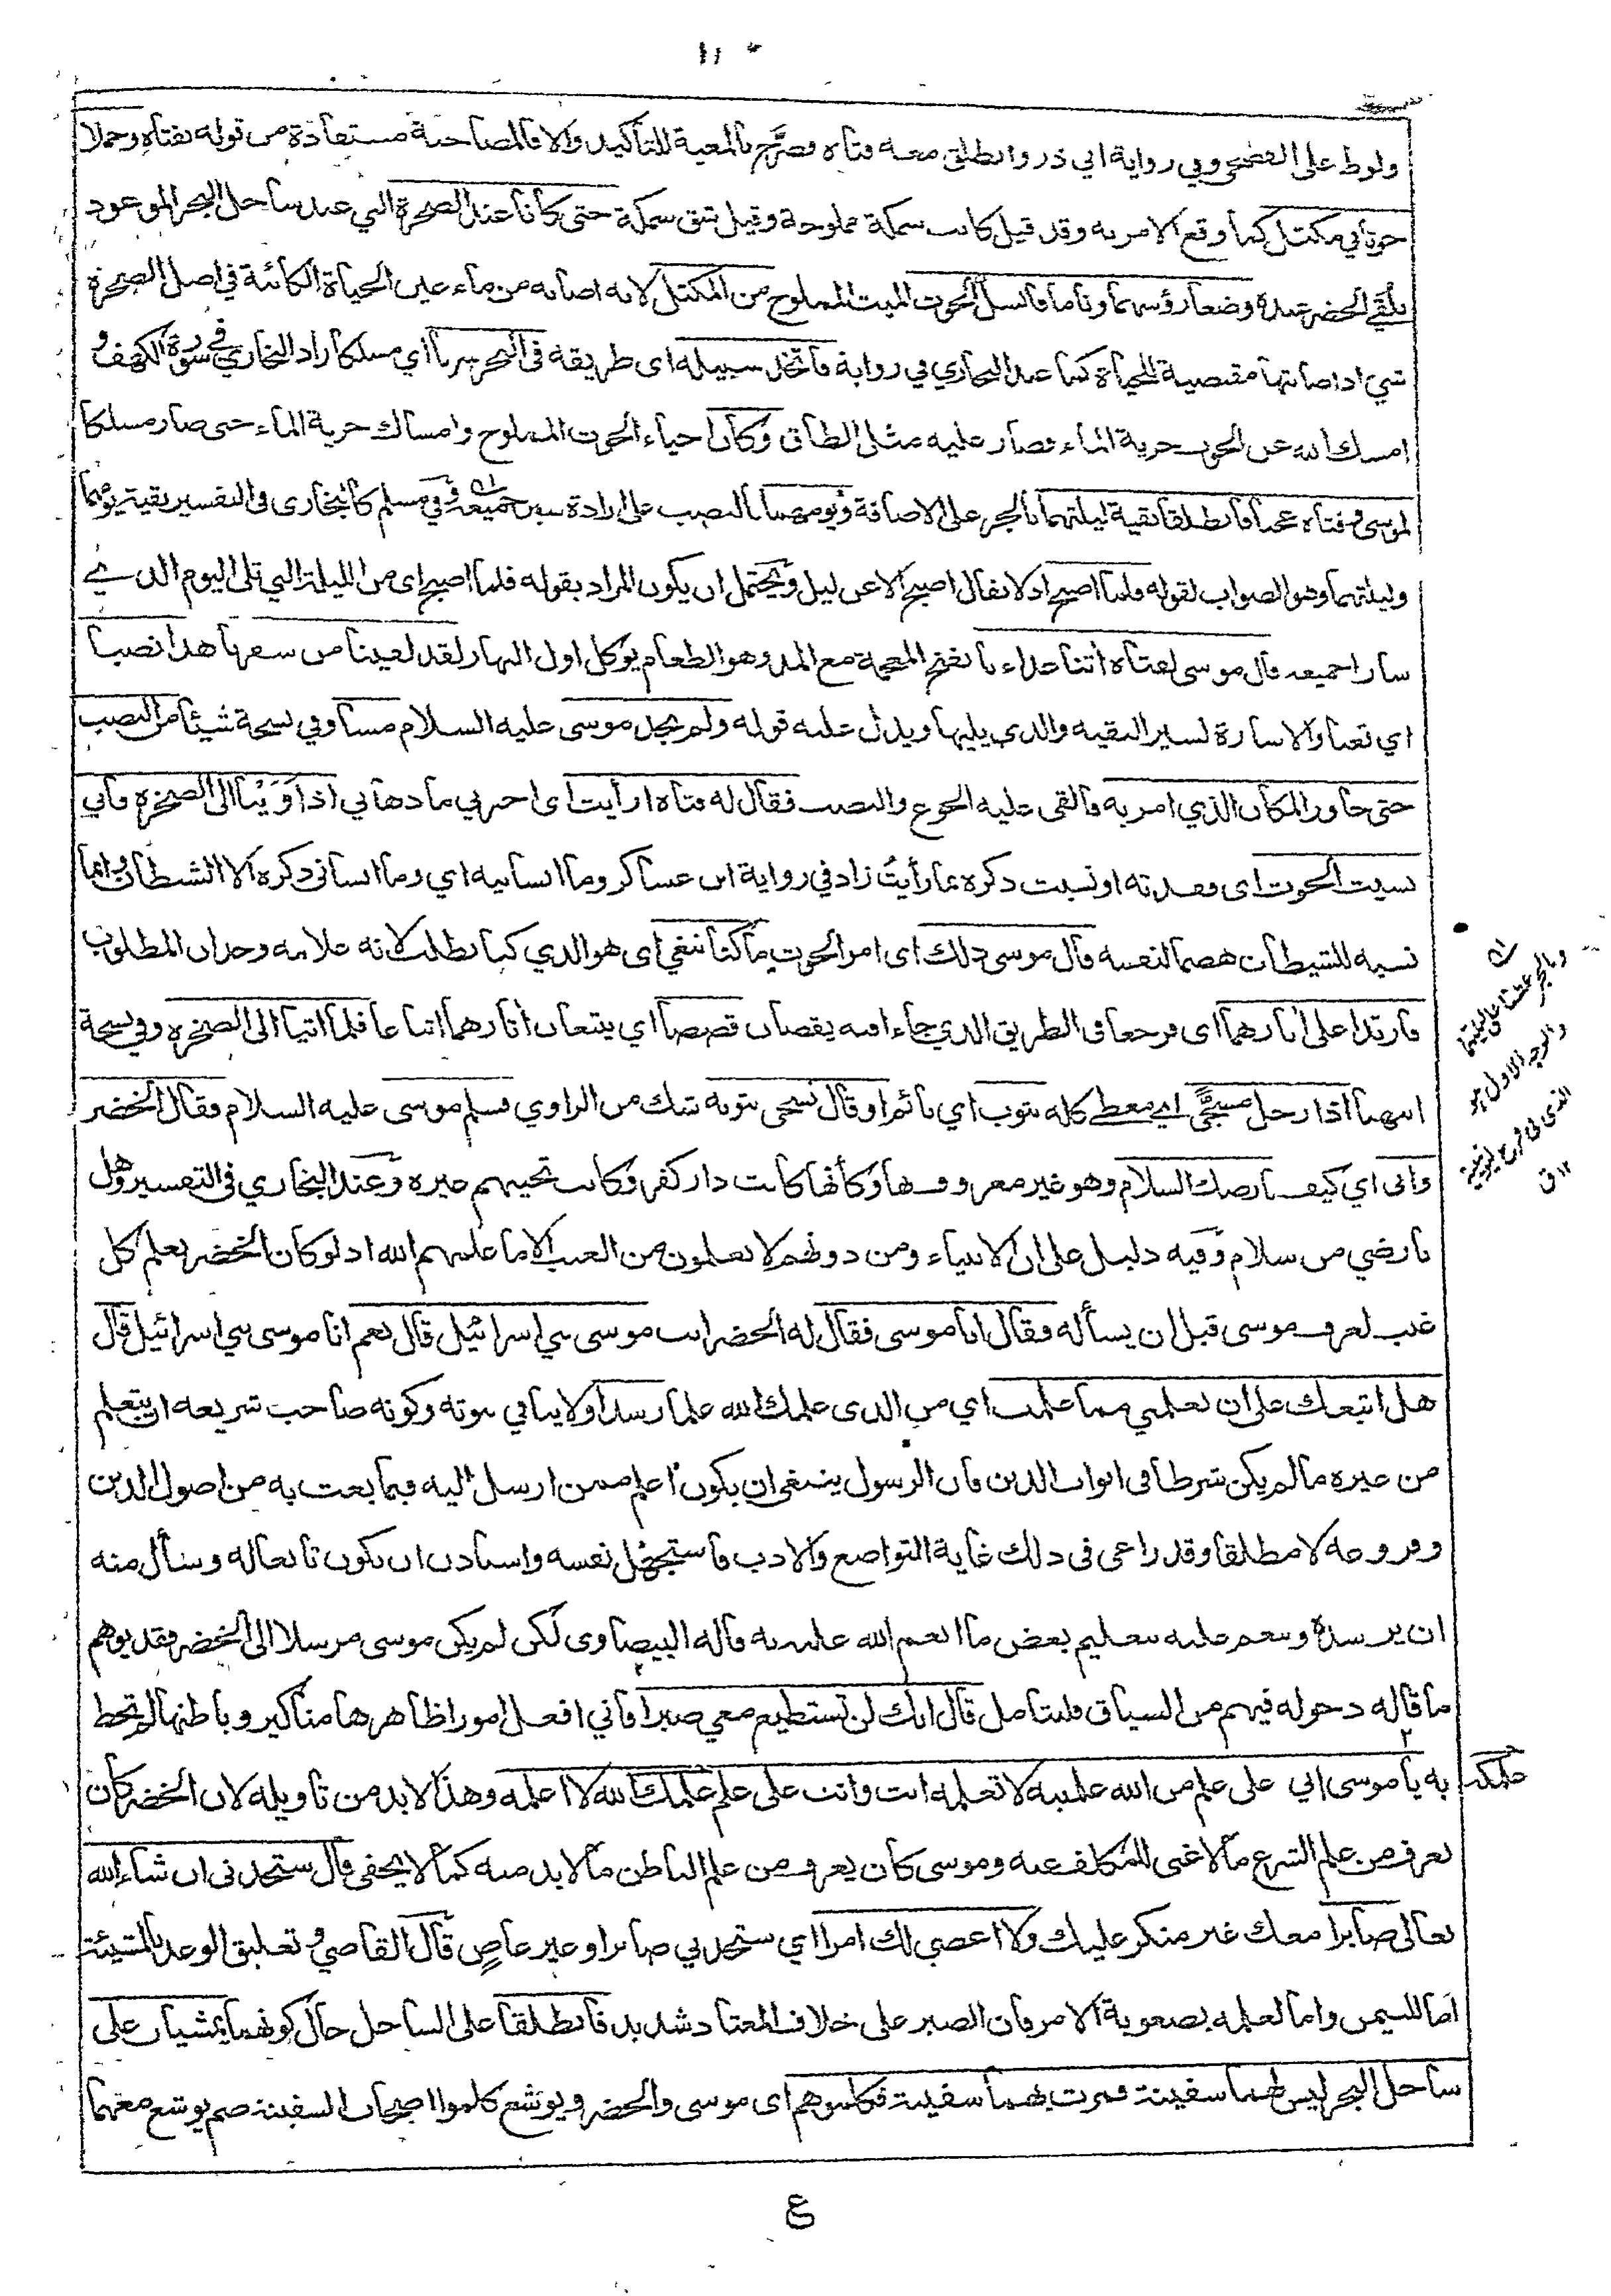 ولوط على الفصحى وفي رواية ابي ذر وانطلق معه فتاه فصرَّح بالمعية للتأكيد والا فالمصاحبة مستفادة من قوله بفتاه وحملا
حوتا في مكتل كما وقع الامر به وقد قيل كانت سمكة مملوحة وقيل شق سمكة حتى كانا عند الصخرة التي عند ساحل البحر الموعود
بلقي الخضر عنده وضعا رؤسهما وناما فانسل الحوت الميت المملوح من المكتل لانه اصابه من ماء عين الحياة الكائنة في اصل الصخرة
شيء اذ اصابتها مقتضية للحياة كما عند البخاري في رواية فاتخذ سبيله اى طريقه فى البحر سربا اي مسلكا زاد البخاري في سورة الكهف و
امسك الله عن الحوت جرية الماء فصار عليه مثل الطاق وكان احياء الحوت المملوح وامساك جرية الماء حتى صار مسلكا
لموسى وفتاه عجبا فانطلقا بقية ليلتهما بالجر على الاضافة ويومهما بالنصب على ارادة سير جميعه وفي مسلم كالبخارى فى التفسير بقية يومهما
وليلتهما وهو الصواب لقوله فلما اصبح اذ لا يقال اصبح الا عن ليل ويحتمل ان يكون المراد بقوله فلما اصبح اى من الليلة التي تلى اليوم الذي
سارا جميعه قال موسى لفتاه اتنا غداءنا بفتح المعجمة مع المد وهو الطعام يوكل اول النهار لقد لقينا من سفرنا هذا نصبا
اي تعبا والاشارة لسير البقيه والذى يليها ويدل عليه قوله ولم يجد موسى عليه السلام مسا وفي نسخة شيئا من النصب
حتى جاوز المكان الذي امر به فالقى عليه الجوع والنصب فقال له فتاه ارأيت اى اخبرني ما دهاني اذ اَوَيْنا الى الصخرة فاني
نسيت الحوت اى فقدته او نسيت ذكره بما رأيتُ زاد في رواية ابن عساكر وما انسانيه اي وما انسانى ذكره الا الشيطان وانما
نسبه للشيطان هضما لنفسه قال موسى ذلك اى امر الحوت ما كنا نبغي اى هو الذي كنا نطلب لانه علامه وجدان المطلوب
فارتدا على اثارهما اى فرجعا فى الطريق الذي جاءا فيه يقصان قصصا اي يتبعان أثارهما اتباعا فلما اتيا الى الصخرة وفي نسخة
انتهيا اذا رجل مسجًّى اي مغطى كله بثوب اي نائم او قال تسجى بثوبه شك من الراوي فسلم موسى عليه السلام فقال الخضر
وانى اي كيف بارضك السلام وهو غير معروف بها وكأنها كانت دار كفر وكانت تحيتهم غيره وعند البخاري فى التفسير وهل
بارضي من سلام وفيه دليل على ان الانبياء ومن دونهم لا يعلمون من الغيب الا ما علمهم الله اذ لو كان الخضر يعلم كل
غيب لعرف موسى قبل ان يسأله فقال انا موسى فقال له الخضر انت موسى بني اسرائيل قال نعم انا موسى بني اسرائيل قال
هل اتبعك على ان تعلمني مما علمت اي من الذى علمك الله علما رشدا ولا ينافي نبوته وكونه صاحب شريعه ان يتعلم
من غيره ما لم يكن شرطا فى ابواب الدين فان الرسول ينبغى ان يكون اعلم ممن ارسل اليه فيما بعث به من اصول الدين
وفروعه لا مطلقا وقد راعى فى ذلك غاية التواضع والادب فاستجهل نفسه واستاذن ان يكون تابعا له وسأل منه
ان يرشده وينعم عليه بتعليم بعض ما انعم الله عليه به قاله البيضاوى لكن لم يكن موسى مرسلا الى الخضر فقد يوهم
ما قاله دخوله فيهم من السياق فليتامل قال انك لن تستطيع معي صبرا فاني افعل امورا ظاهرها مناكير وباطنها لم يحط
به يا موسى اني على علم من الله علمنيه لا تعلمه انت وانت على علم علمك الله لا اعلمه وهذا لا بد من تاويله لان الخضر كان
يعرف من علم الشرع ما لا غنى للمكلف عنه وموسى كان يعرف من علم الباطن ما لا بد منه كما لا يخفى قال ستجدنى ان شاء الله
تعالى صابرا معك غير منكر عليك ولا اعصي لك امرا اي ستجدني صابرا وغير عاصٍ قال القاضي وتعليق الوعد بالمشيئة
اما للتيمن واما لعلمه بصعوبة الامر فان الصبر على خلاف المعتاد شديد فانطلقا على الساحل حال كونهما يمشيان على
ساحل البحر ليس لهما سفينة فمرت بهما سفينة فكلموهم اى موسى والخضر ويوشع كلموا اصحاب السفينة ضم يوشع معهما
وبالجر عطفا على ليلتهما
والوجه الاول هو
الذى فى فرع اليونينية
١٢ ق
علمك